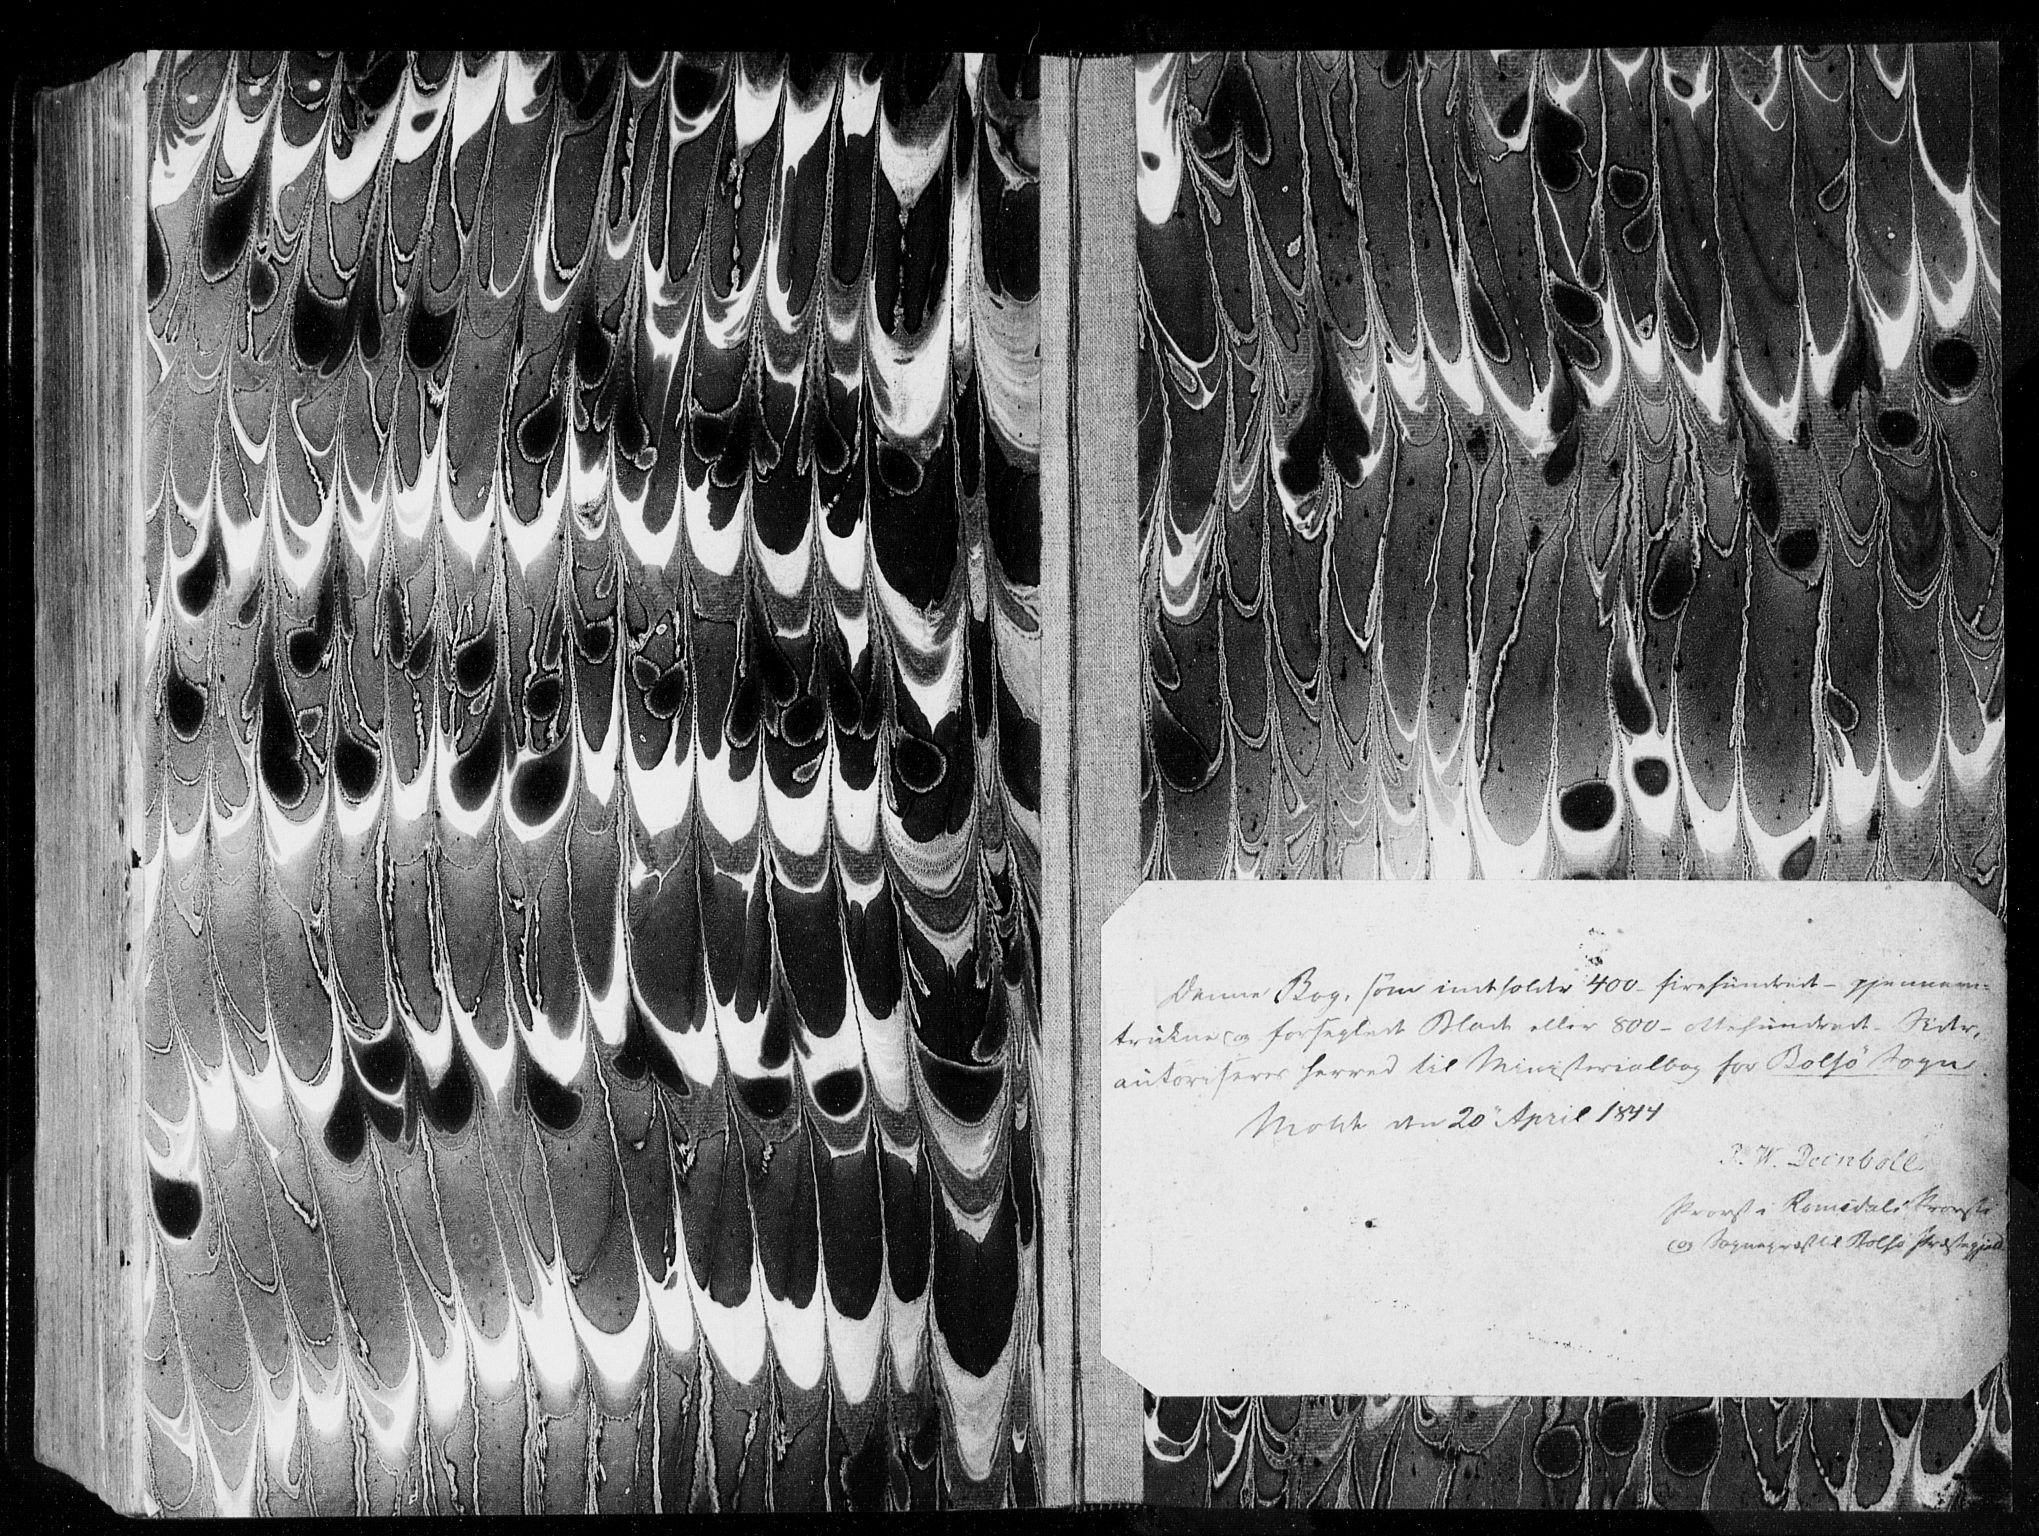 Denne Bog, som indeholder 400 - firehundrede - gjennem-
trukne og forseglede Blade eller 800 - ottehundrede - Sider,
autoriseres herved til Ministerialbog for Bolsö Sogn.
Molde den 20 April 1844
J. W. Deinboll
Provst i Romsdals Provsti
og Sognepræst til Bolsö Præstegjeld